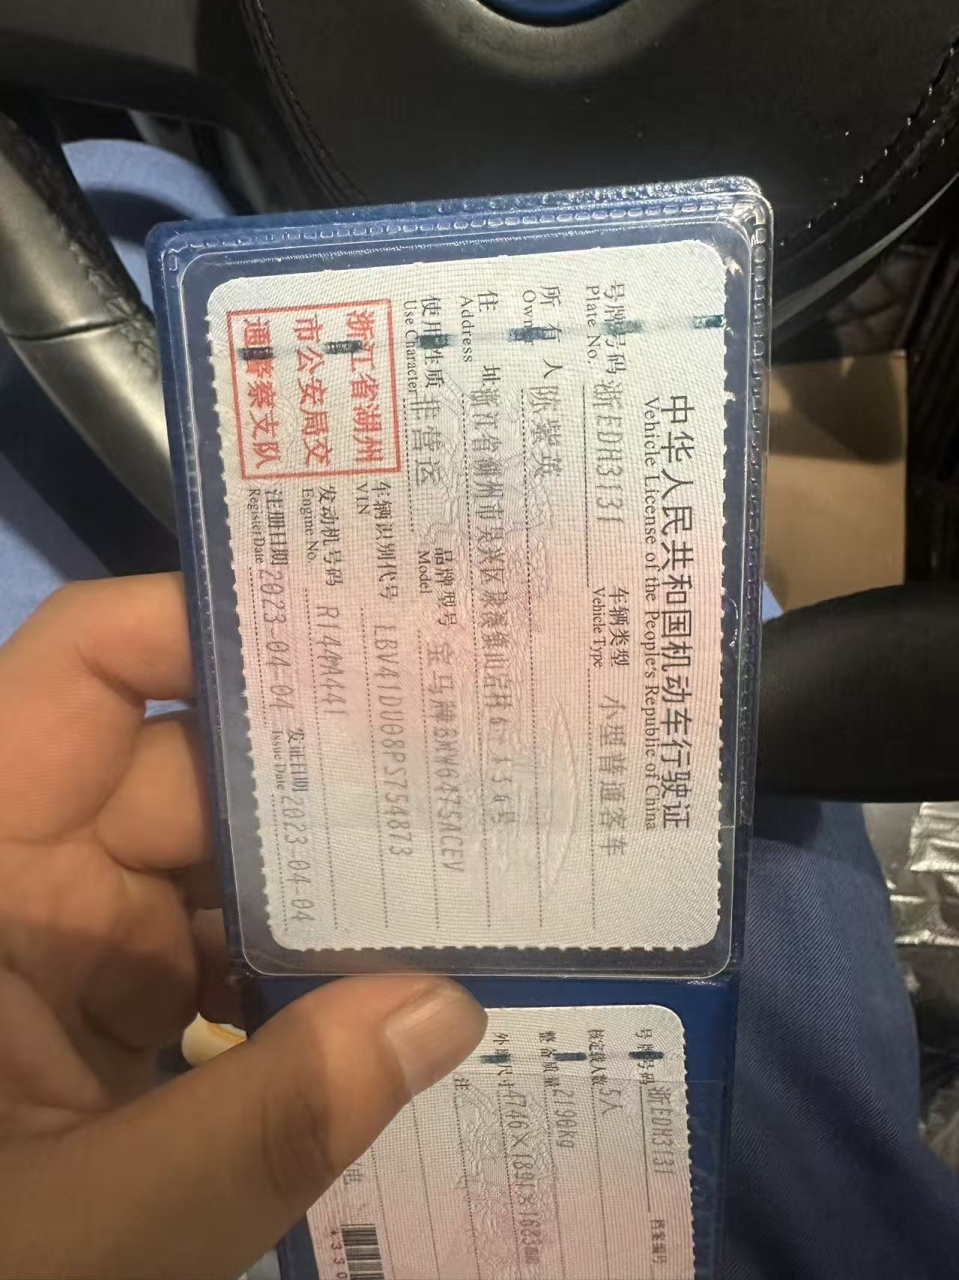 中华人民共和国机动车行驶证
Vehicle License of the People's Republic of China
号牌号码 浙EDH3131 车辆类型 小型普通客车
Plate No. Vehicle Type
所有人 陈紫英
Owner
住址 浙江省湖州市吴兴区
Address
使用性质 非营运 品牌型号 宝马牌BMW6475ACEV
Use Character Model
车辆识别代号 LBV41DU08PS754873
VIN
发动机号码
Engine No.
注册日期 2023-04-04 发证日期 2023-04-04
Register Date Issue Date
浙江省湖州
市公安局交
通警察支队
号牌号码 浙EDH3131 档案编号
核定载人数 5人
整备质量 2190kg
外廓尺寸 4746×1891×1683mm
注
电